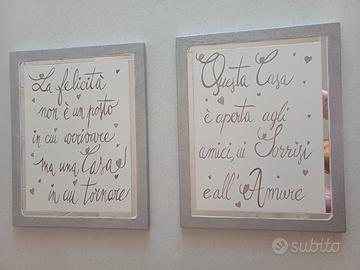 La felicità
non è un posto
in cui arrivare
ma una Casa
in cui tornare
Questa Casa
è aperta agli
amici, ai Sorrisi
e all'Amore
subito